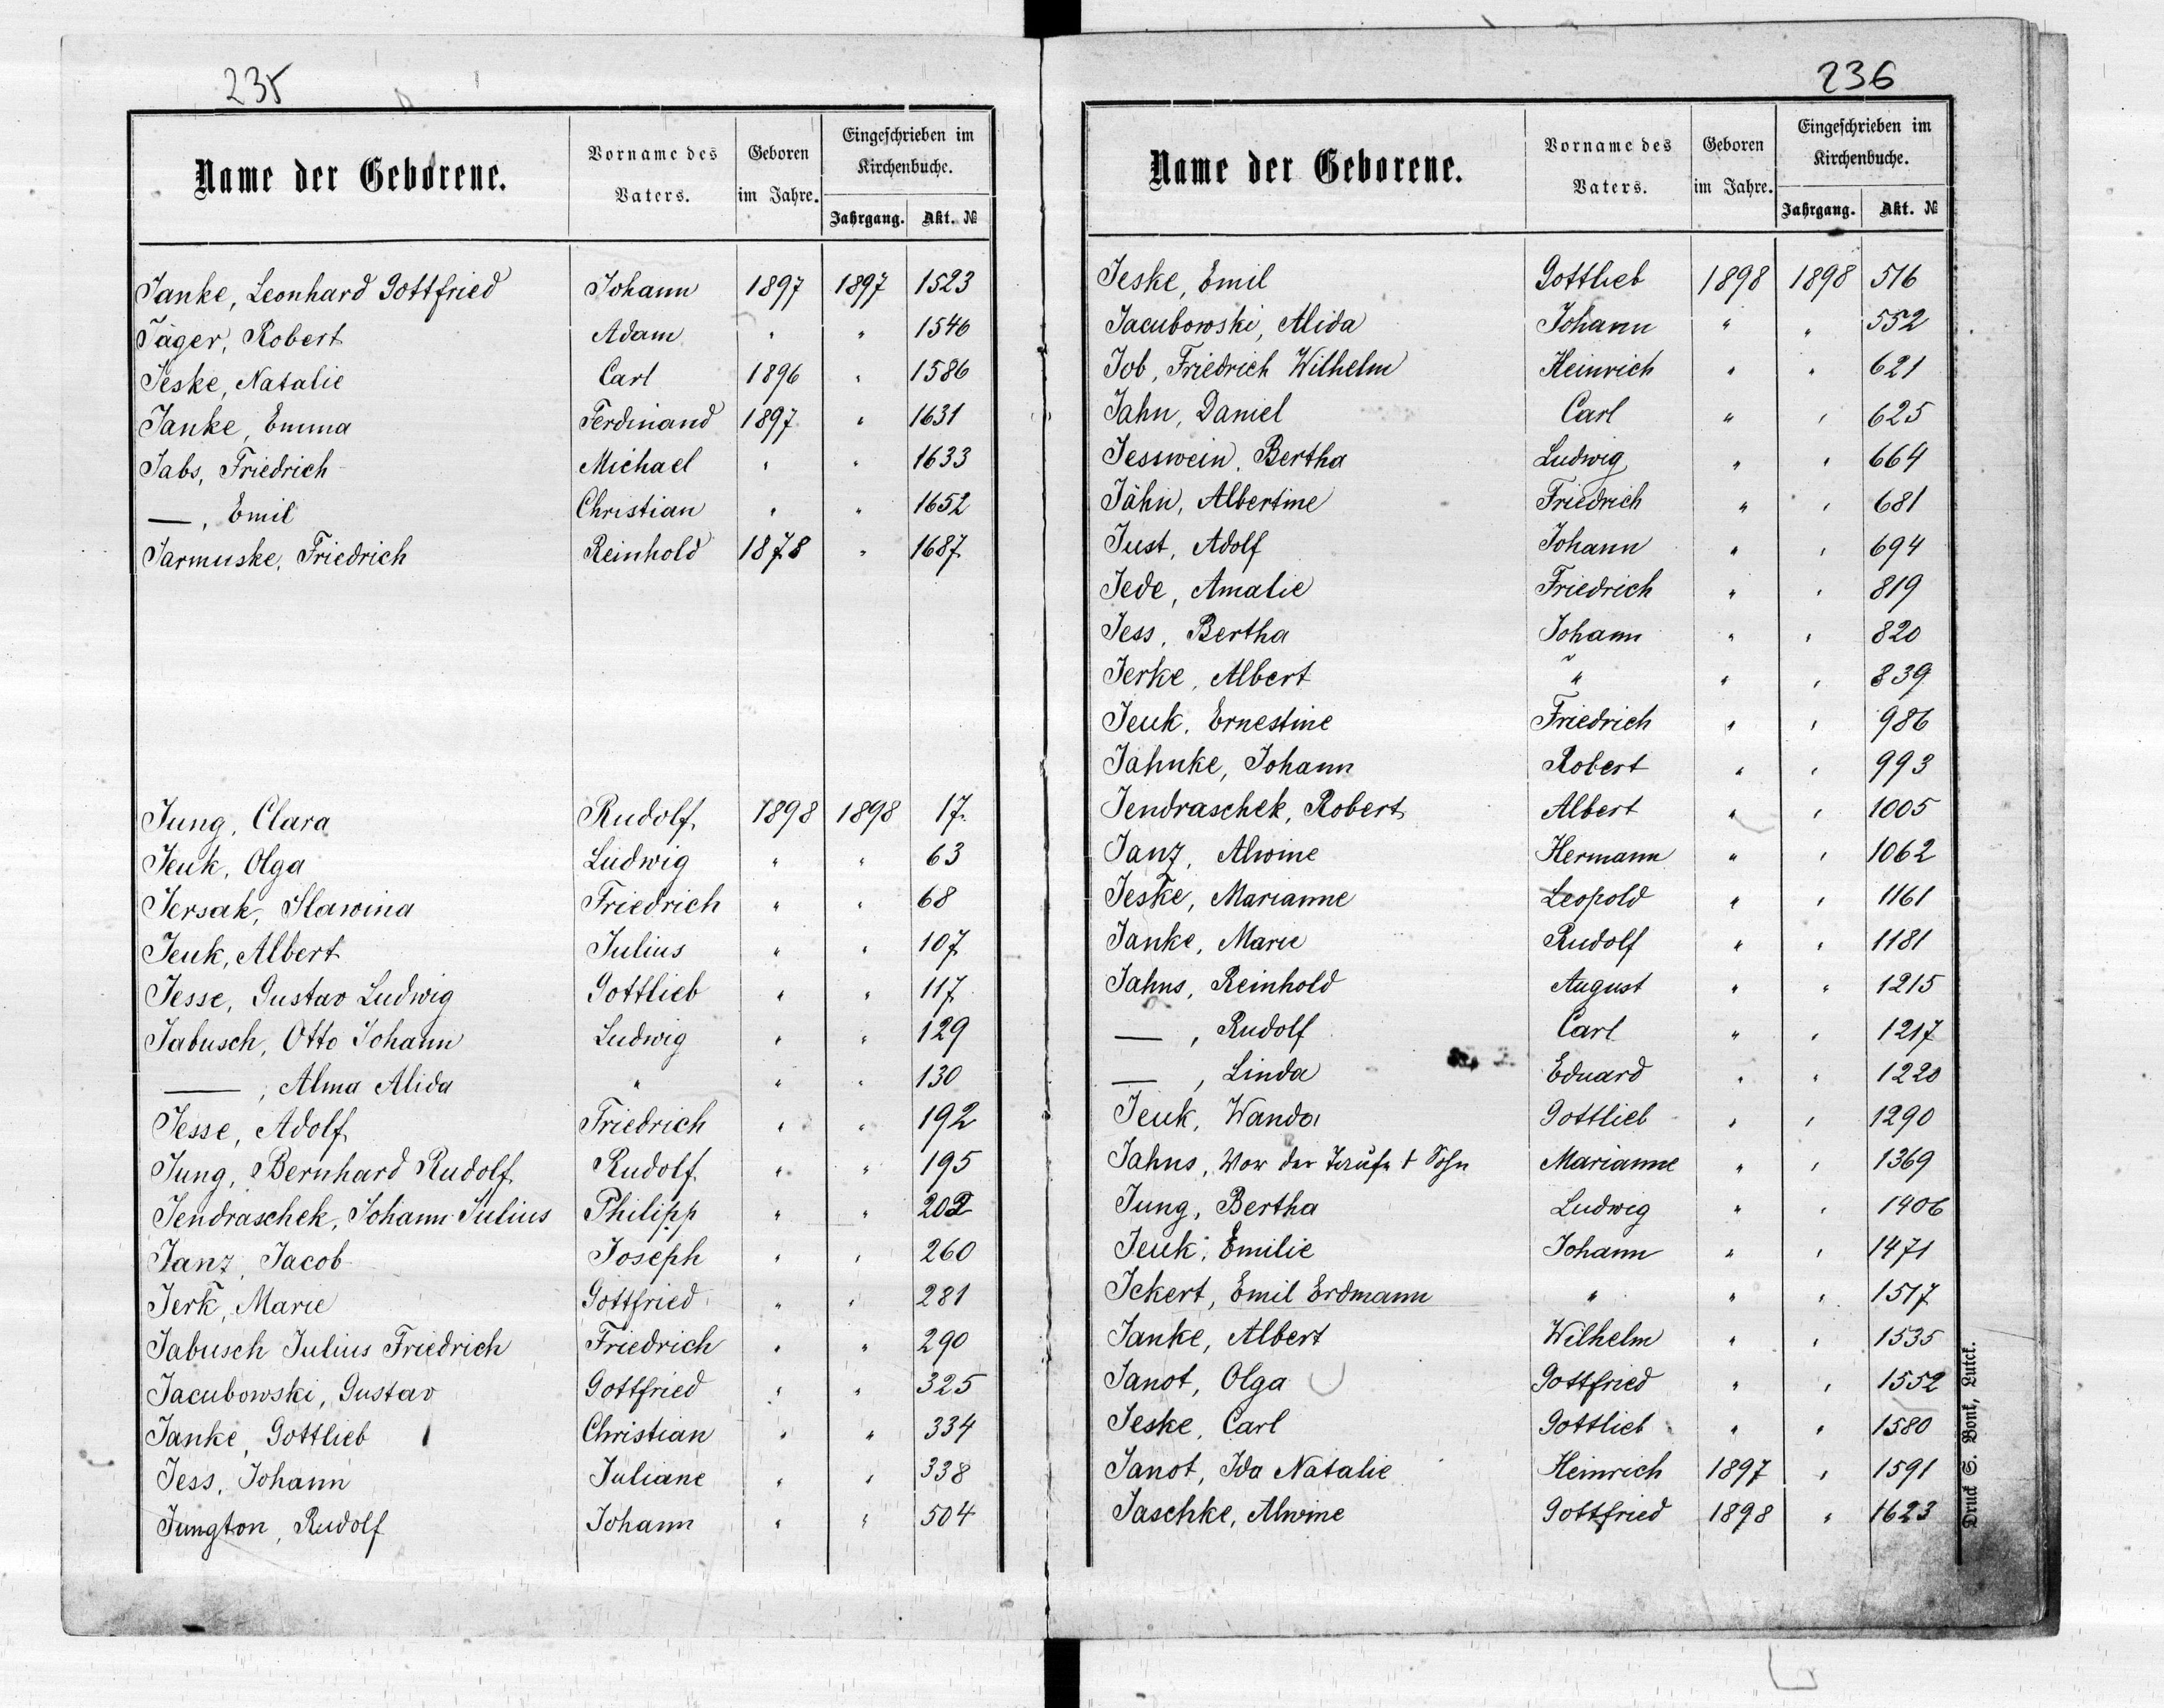 235
Name der Geborene. Vorname des Vaters. Geboren im Jahre. Eingeschrieben im Kirchenbuche. Jahrgang. Akt. №
Janke, Leonhard Gottfried Johann 1897 1897 1523
Jäger, Robert Adam " " 1546
Jeske, Natalie Carl 1896 " 1586
Janke, Emma Ferdinand 1897 " 1631
Jabs, Friedrich Michael " " 1633
—, Emil Christian " " 1652
Jarmuske, Friedrich Reinhold 1878 " 1687
Jung, Clara Rudolf 1898 1898 17.
Jeuk, Olga Ludwig " " 63
Jersak, Slawina Friedrich " " 68
Jeuk, Albert Julius " " 107
Jesse, Gustav Ludwig Gottlieb " " 117
Jabusch, Otto Johann Ludwig " " 129
—, Alma Alida " " " 130
Jesse, Adolf Friedrich " " 192
Jung, Bernhard Rudolf Rudolf " " 195
Jendraschek, Johann Julius Philipp " " 202
Janz, Jacob Joseph " " 260
Jerk, Marie Gottfried " " 281
Jabusch Julius Friedrich Friedrich " " 290
Jacubowski, Gustav Gottfried " " 325
Janke, Gottlieb Christian " " 334
Jess, Johann Juliane " " 338
Jungton, Rudolf Johann " " 504
236
Name der Geborene. Vorname des Vaters. Geboren im Jahre. Eingeschrieben im Kirchenbuche. Jahrgang. Akt. №
Jeske, Emil Gottlieb 1898 1898 516
Jacubowski, Alida Johann " " 552
Job, Friedrich Wilhelm Heinrich " " 621
Jahn, Daniel Carl " " 625
Jesswein, Bertha Ludwig " " 664
Jähn, Albertine Friedrich " " 681
Just, Adolf Johann " " 694
Jede, Amalie Friedrich " " 819
Jess, Bertha Johann " " 820
Jerke, Albert " " " 839
Jeuk, Ernestine Friedrich " " 986
Jahnke, Johann Robert " " 993
Jendraschek, Robert Albert " " 1005
Janz, Alwine Hermann " " 1062
Jeske, Marianne Leopold " " 1161
Janke, Marie Rudolf " " 1181
Jahns, Reinhold August " " 1215
—, Rudolf Carl " " 1217
—, Linda Eduard " " 1220
Jeuk, Wanda Gottlieb " " 1290
Jahns, Vor der Taufe † Sohn Marianne " " 1369
Jung, Bertha Ludwig " " 1406
Jeuk, Emilie Johann " " 1471
Ickert, Emil Erdmann " " " 1517
Janke, Albert Wilhelm " " 1535
Janot, Olga Gottfried " " 1552
Jeske, Carl Gottlieb " " 1580
Janot, Ida Natalie Heinrich 1897 " 1591
Jaschke, Alwine Gottfried 1898 " 1623
Druck S. Bonk, Lutck.